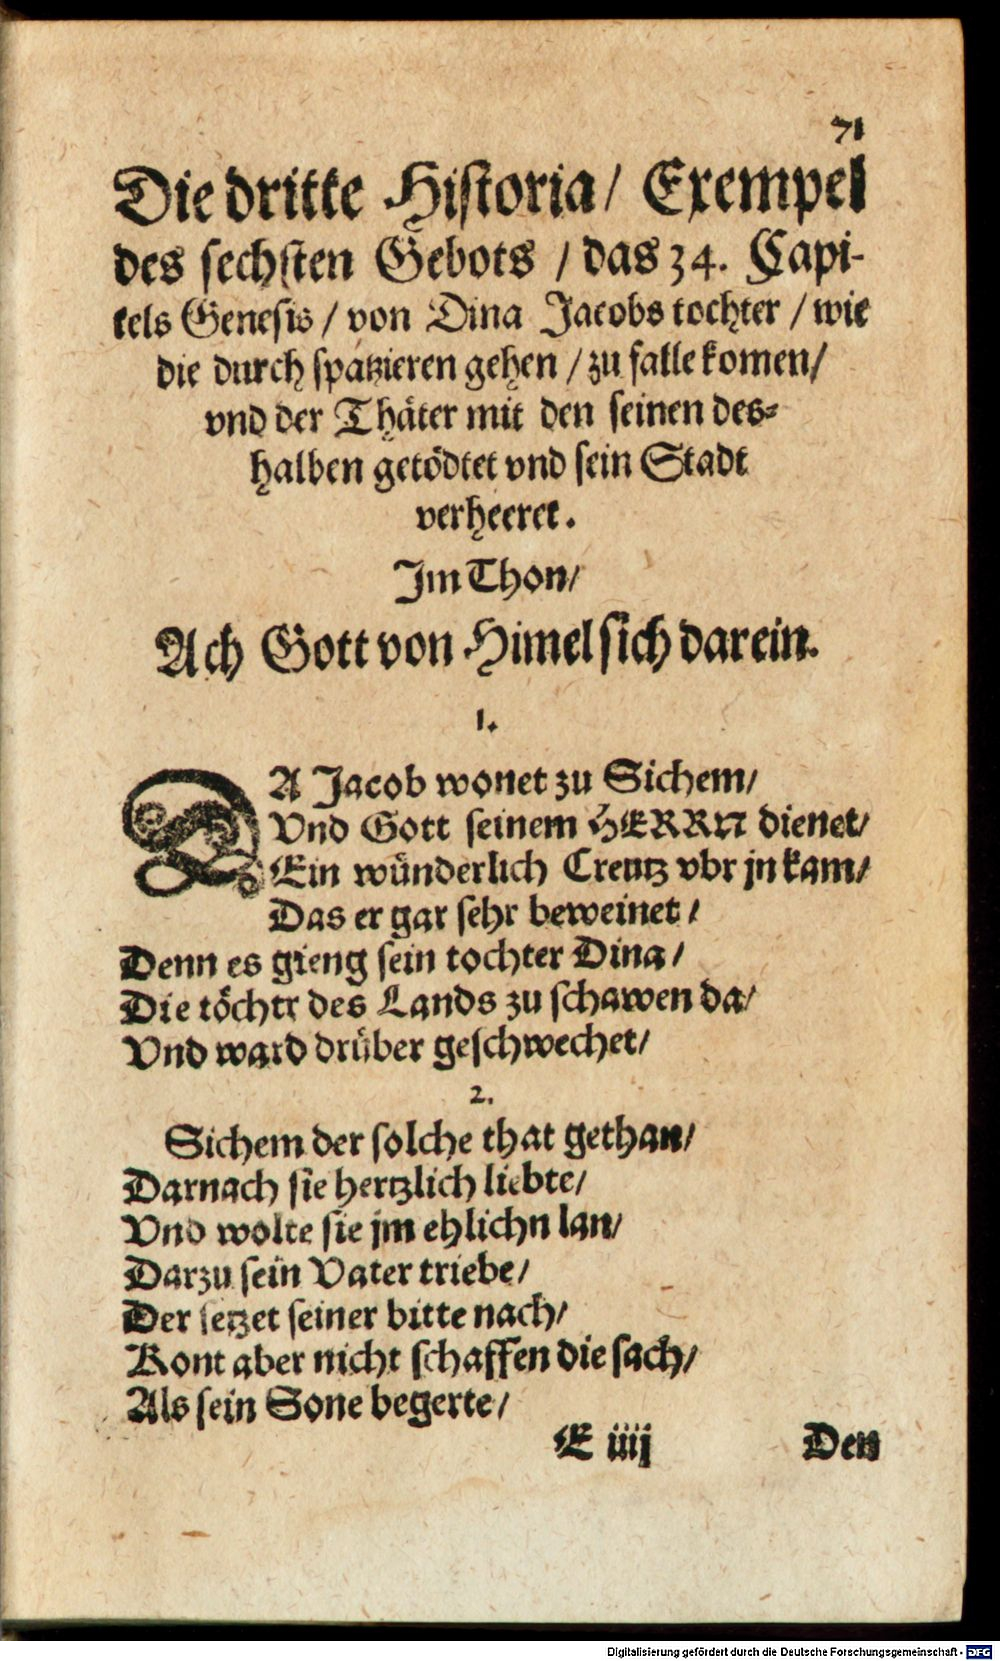 71
Die dritte Historia/ Exempel
des sechsten Gebots / das 34. Capi-
tels Genesis / von Dina Jacobs tochter / wie
die durch spatzieren gehen / zu falle komen/
vnd der Thäter mit den seinen des-
halben getödtet vnd sein Stadt
verheeret.
Im Thon/
Ach Gott von Himel sich darein.
1.
DA Jacob wonet zu Sichem/
Vnd Gott seinem HERRN dienet/
Ein wünderlich Creutz vbr jn kam/
Das er gar sehr beweinet /
Denn es gieng sein tochter Dina/
Die töchtr des Lands zu schawen da/
Vnd ward drüber geschwechet/
2.
Sichem der solche that gethan/
Darnach sie hertzlich liebte/
Vnd wolte sie jm ehlichn lan/
Darzu sein Vater triebe/
Der setzet seiner bitte nach/
Kont aber nicht schaffen die sach/
Als sein Sone begerte/
E iiij Den
Digitalisierung gefördert durch die Deutsche Forschungsgemeinschaft - DFG